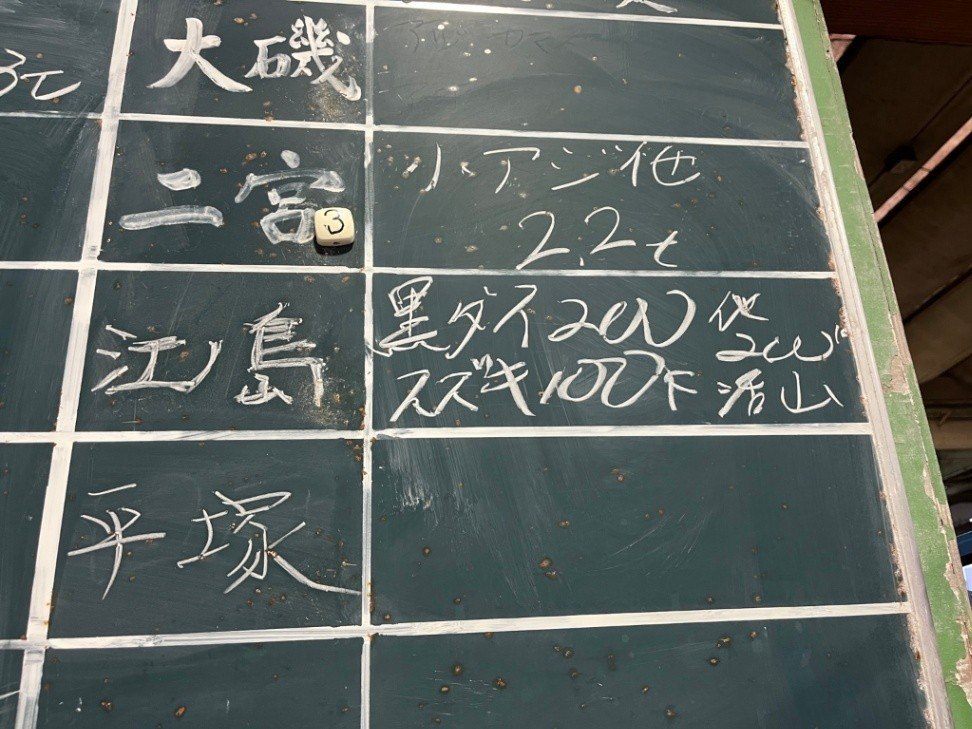 大磯
二宮
3
小アジ他
2.2t
江島
黒ダイ200 他
スズキ100下 活山
平塚